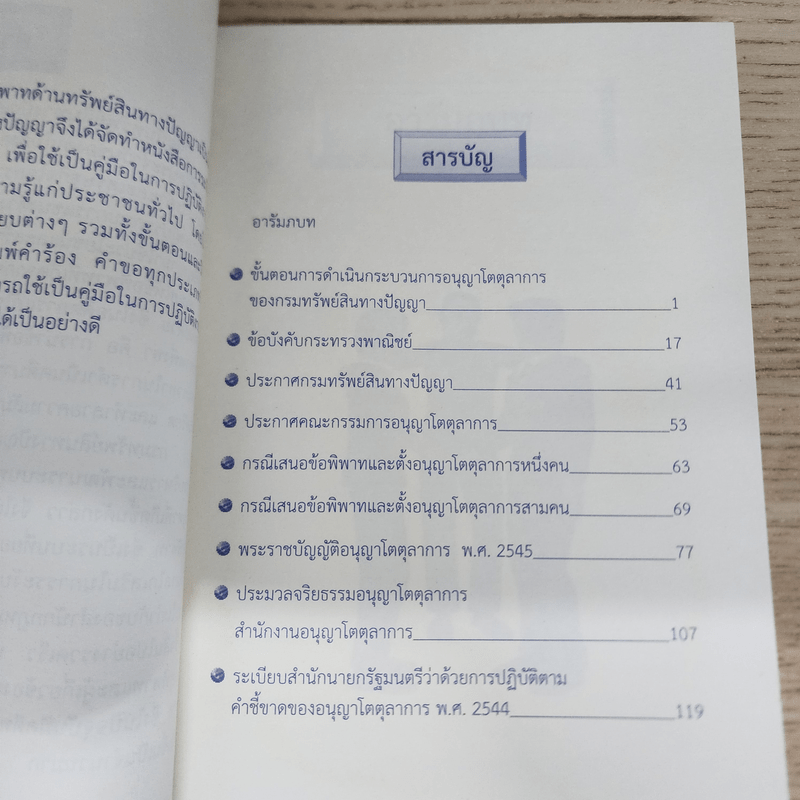 พาทด้านทรัพย์สินทางปัญญา
ปัญญาจึงได้จัดทำหนังสือการ
เพื่อใช้เป็นคู่มือในการปฏิบัติ
ามรู้แก่ประชาชนทั่วไป
ยบต่างๆ รวมทั้งขั้นตอนและ
พ์คำร้อง คำขอทุกประเภท
รถใช้เป็นคู่มือในการปฏิบัติ
ได้เป็นอย่างดี
สารบัญ
อารัมภบท
ขั้นตอนการดำเนินกระบวนการอนุญาโตตุลาการ
ของกรมทรัพย์สินทางปัญญา 1
ข้อบังคับกระทรวงพาณิชย์ 17
ประกาศกรมทรัพย์สินทางปัญญา 41
ประกาศคณะกรรมการอนุญาโตตุลาการ 53
กรณีเสนอข้อพิพาทและตั้งอนุญาโตตุลาการหนึ่งคน 63
กรณีเสนอข้อพิพาทและตั้งอนุญาโตตุลาการสามคน 69
พระราชบัญญัติอนุญาโตตุลาการ พ.ศ. 2545 77
ประมวลจริยธรรมอนุญาโตตุลาการ
สำนักงานอนุญาโตตุลาการ 107
ระเบียบสำนักนายกรัฐมนตรีว่าด้วยการปฏิบัติตาม
คำชี้ขาดของอนุญาโตตุลาการ พ.ศ. 2544 119